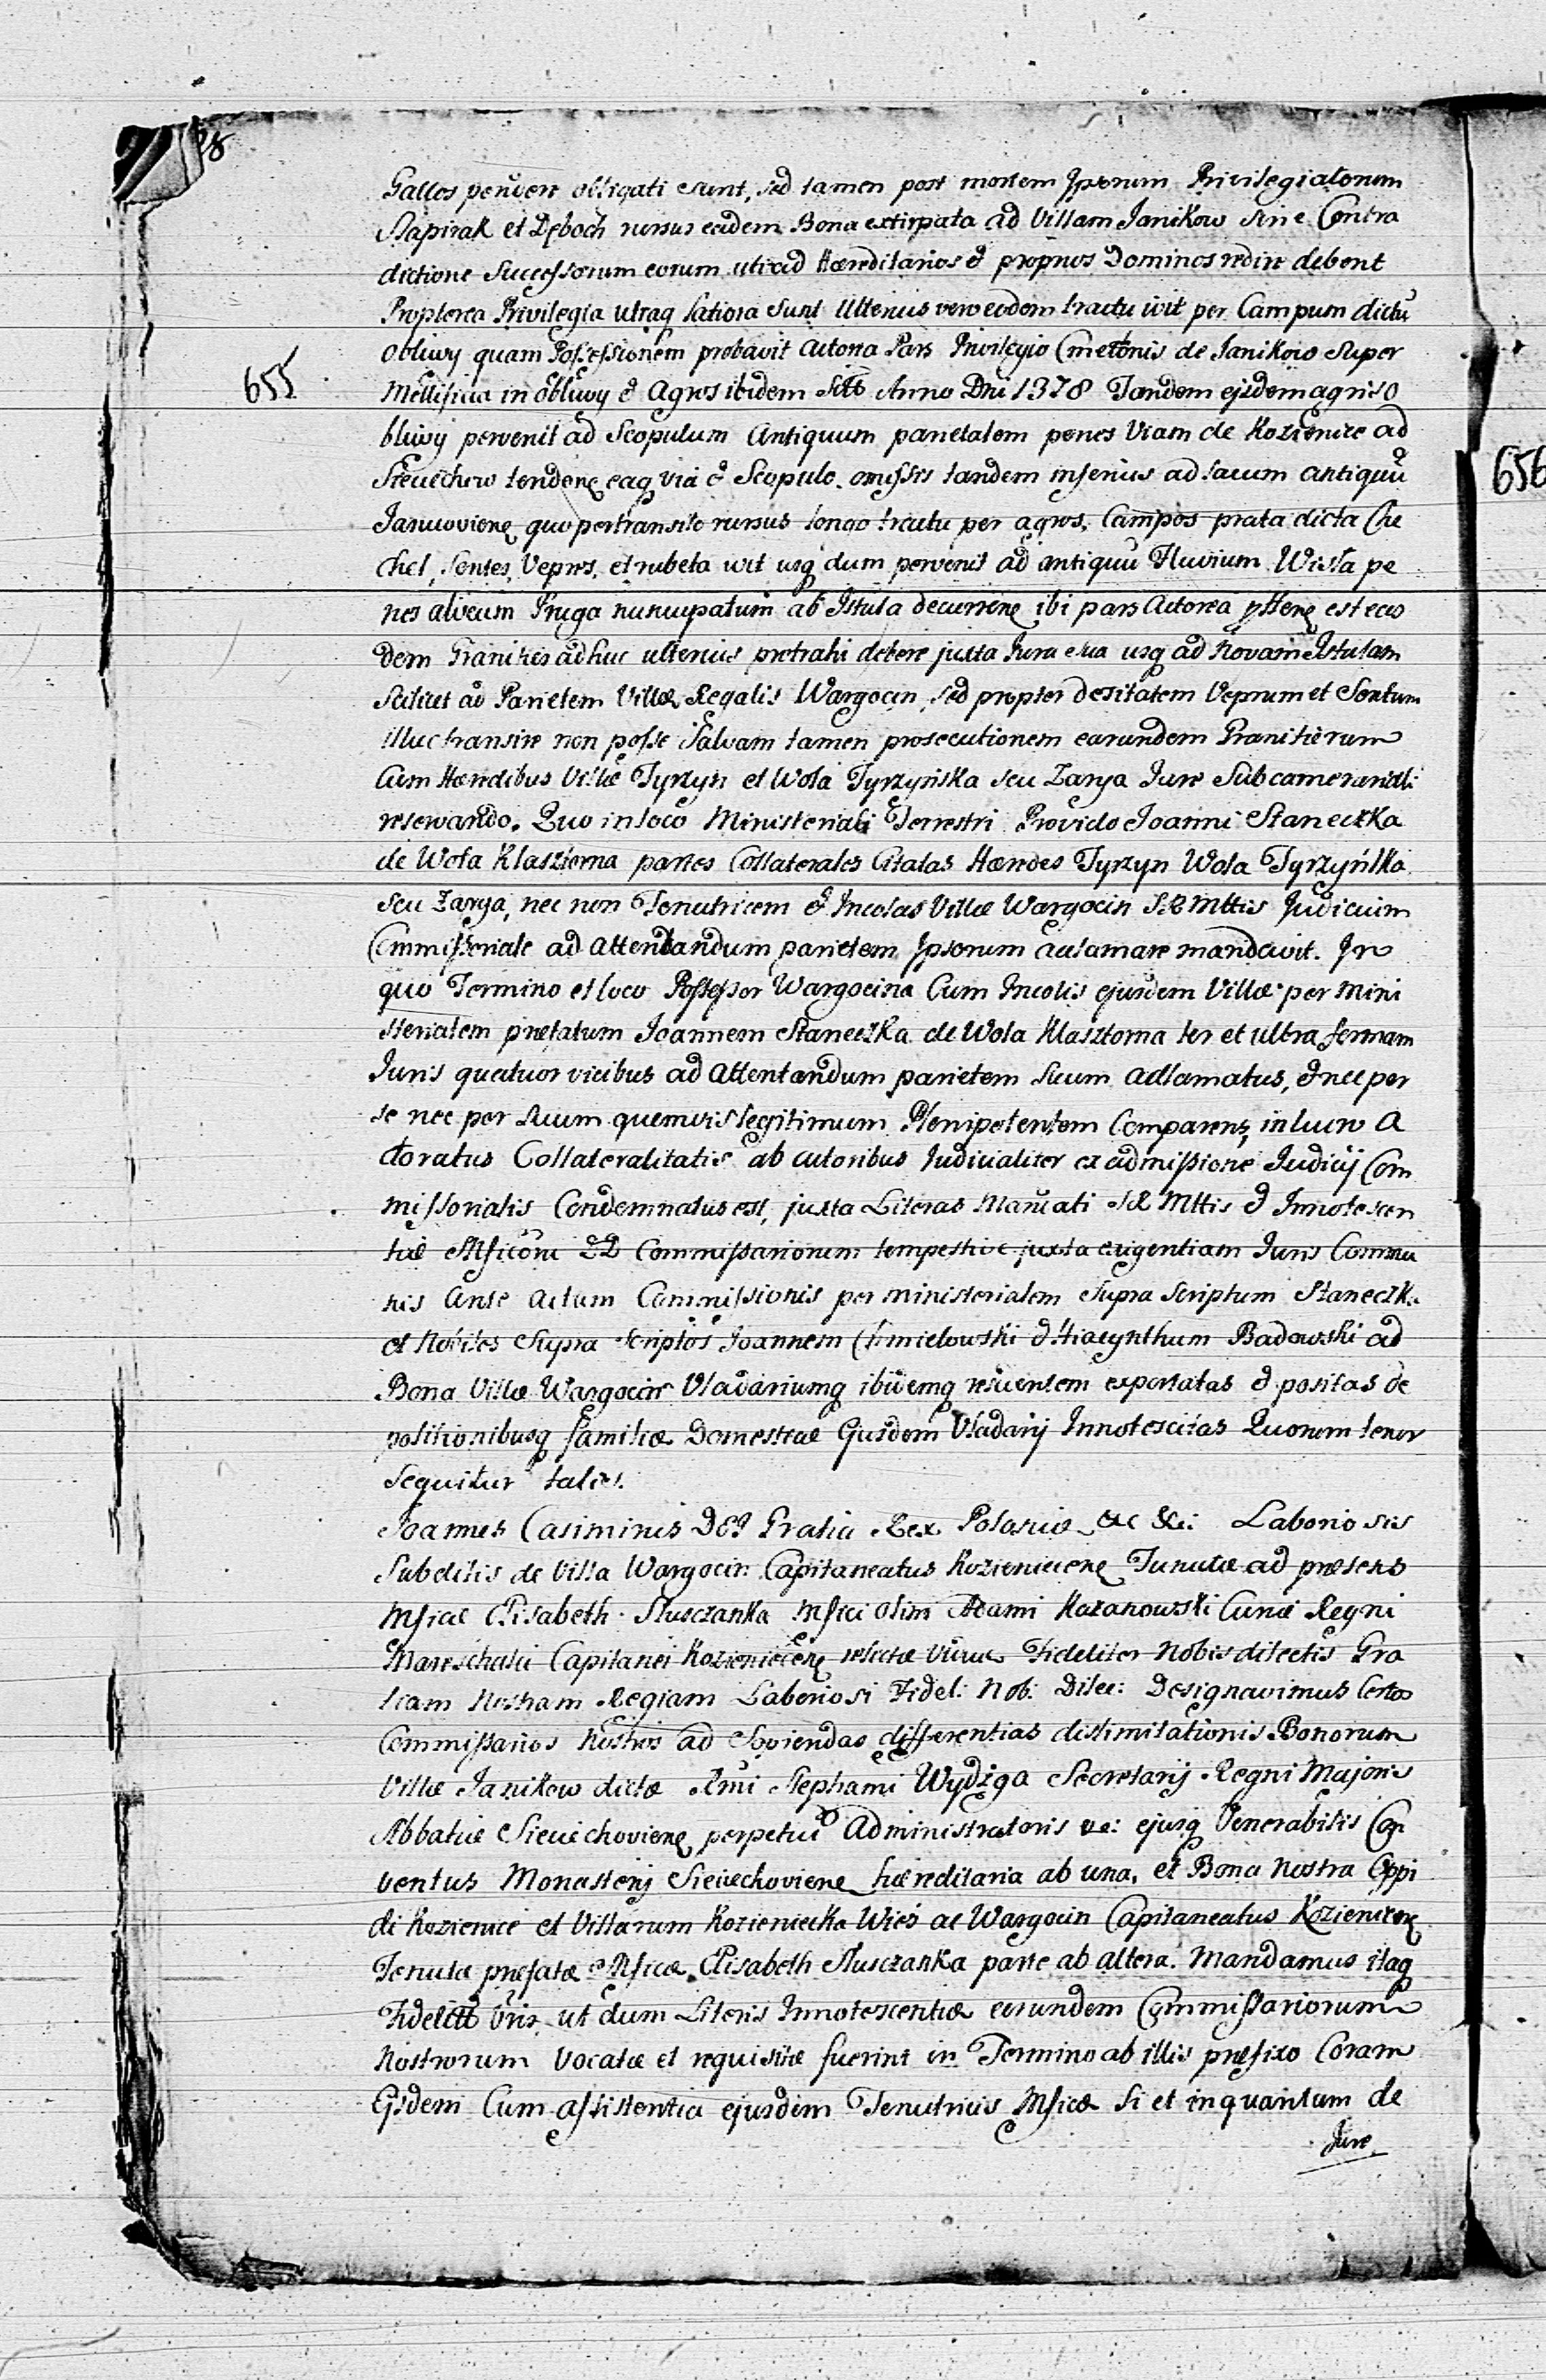 28
Gallos pendere obligati sunt, sed tamen post mortem Ipsorum Privilegiatorum
Słapirak et Dęboch rursus eadem Bona extirpata ad Villam Janikow sine Contra
dictione Successorum eorum uti ad Hæreditarios & proprios Dominos redire debent
Propterea Privilegia utraq latiora sunt Ulterius vero eodem tractu ivit per Campum dictū
Obliwy quam Possessionem probavit Actorea Pars Privilegio Cmetonis de Janikow super
655
Mellificia in Obliwy & Agros ibidem Anno Dni 1378 Tandem ejsdem agris O
bliwy pervenit ad Scopulum Antiquum parietalem penes Viam de Kozienice ad
Sieciechow tenden eaq via & Scopulo omissis tandem inferius ad lacum antiquū
656
quo pertransito rursus longo tractu per agros, Campos prata dicta Che
chel, sentes, Vepres, et rubeta ivit usq dum pervenit ad antiquū Fluvium Wisła pe
nes alveum Struga nuncupatum ab Istula decurren ibi pars Actorea est eas
dem Granities adhuc ulterius protrahi debere juxta Jura sua usq ad Novam Istulam
Scilicet ad Parietem Villæ Regalis Wargocin, sed propter desitatem Veprum et Sentum
illuc transire non posse Salvam tamen prosecutionem earundem Granitierum
Cum Hæredibus Villæ Tyrzyn et Wola Tyrzyńska seu Zarya Jure Subcamerariali
reservando. Quo in loco Ministeriali Terrestri Provido Joanni Staneczka
de Wola Klasztorna partes Collaterales Citatas Hæredes Tyrzyn Wola Tyrzyńska
seu Zarya, nec non Tenutricem & Incolas Villæ Wargocin S R Mttis Judicium
Commissoriale ad attentandum parietem Ipsorum acclamare mandavit. In
quo Termino et loco Possessor Wargocina Cum Incolis ejusdem Villæ per Mini
sterialem præfatum Joannem Staneczka de Wola Klasztorna ter et ultra formam
Juris quatuor vicibus ad Attentandum parietem suum adlamatus, & nec per
se nec per suum quemvis legitimum Plenipotentem Comparens, in lucro A
ctoratus Collateralitatis ab actoribus Judicialiter ex admissione Judicij Com
missorialis Condemnatus est, juxta Literas Mandati S R Mttis & Innotescen
tiæ DD Commissariorum tempestive juxta exigentiam Juris Commu
nis Ante Actum Commissionis per ministerialem Supra Scriptum Staneczk.
et Nobiles Supra Scriptos Joannem Chmielowski & Hiacynthum Badowski ad
Bona Villæ Wargocin Vladariumq ibidemq residentem exportatas & positas de
positionibusq familiæ Domesticæ Ejusdem Vladarij Innotescitas Quorum tenor
Sequitur talis.
Joannes Casimirus DEI Gratia Rex Poloniæ &c &c: Laboriosis
Subditis de Villa Wargocin Capitaneatus Kozienicen Tenutæ ad præsens
Mficæ Elisabeth Słusczanka Mfici olim Adami Kazanowski Curiæ Regni
Mareschalci Capitanei Kozieniecen relictæ Viduæ Fideliter Nobis dilectis Gra
tiam Nostram Regiam Laboriosi Fidel: Nob: Dilec: Designavimus Certos
Commissarios Nostros ad Sopiendas differentias distimitationis Bonorum
Villæ Janikow dictæ Rmi Stephani Wydżga Secretarij Regni Majoris
Abbatiæ Sieciechovien perpetui Administratoris ejusq Venerabilis Con
ventus Monasterij Sieciechovien hæreditaria ab una, et Bona Nostra Oppi
di Kozienice et Villarum Kozieniecka Wieś ac Wargocin Capitaneatus Kozienicen
Tenuta præfatæ Mficæ Elisabeth Słusczanka parte ab altera. Mandamus itaq
Vris, ut dum Literis Innotescentiæ eorundem Commissariorum
Nostrorum Vocatæ et requisitæ fuerint in Termino ab illis præfixo Coram
Ejsdem Cum assistentia ejusdem Tenutricis Mficæ Si et inquantum de
Jure